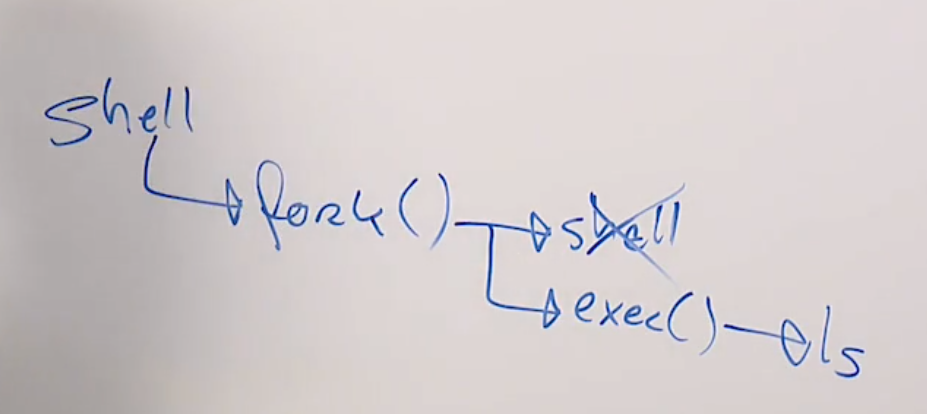 shell
fork()
shell
exec()
ls